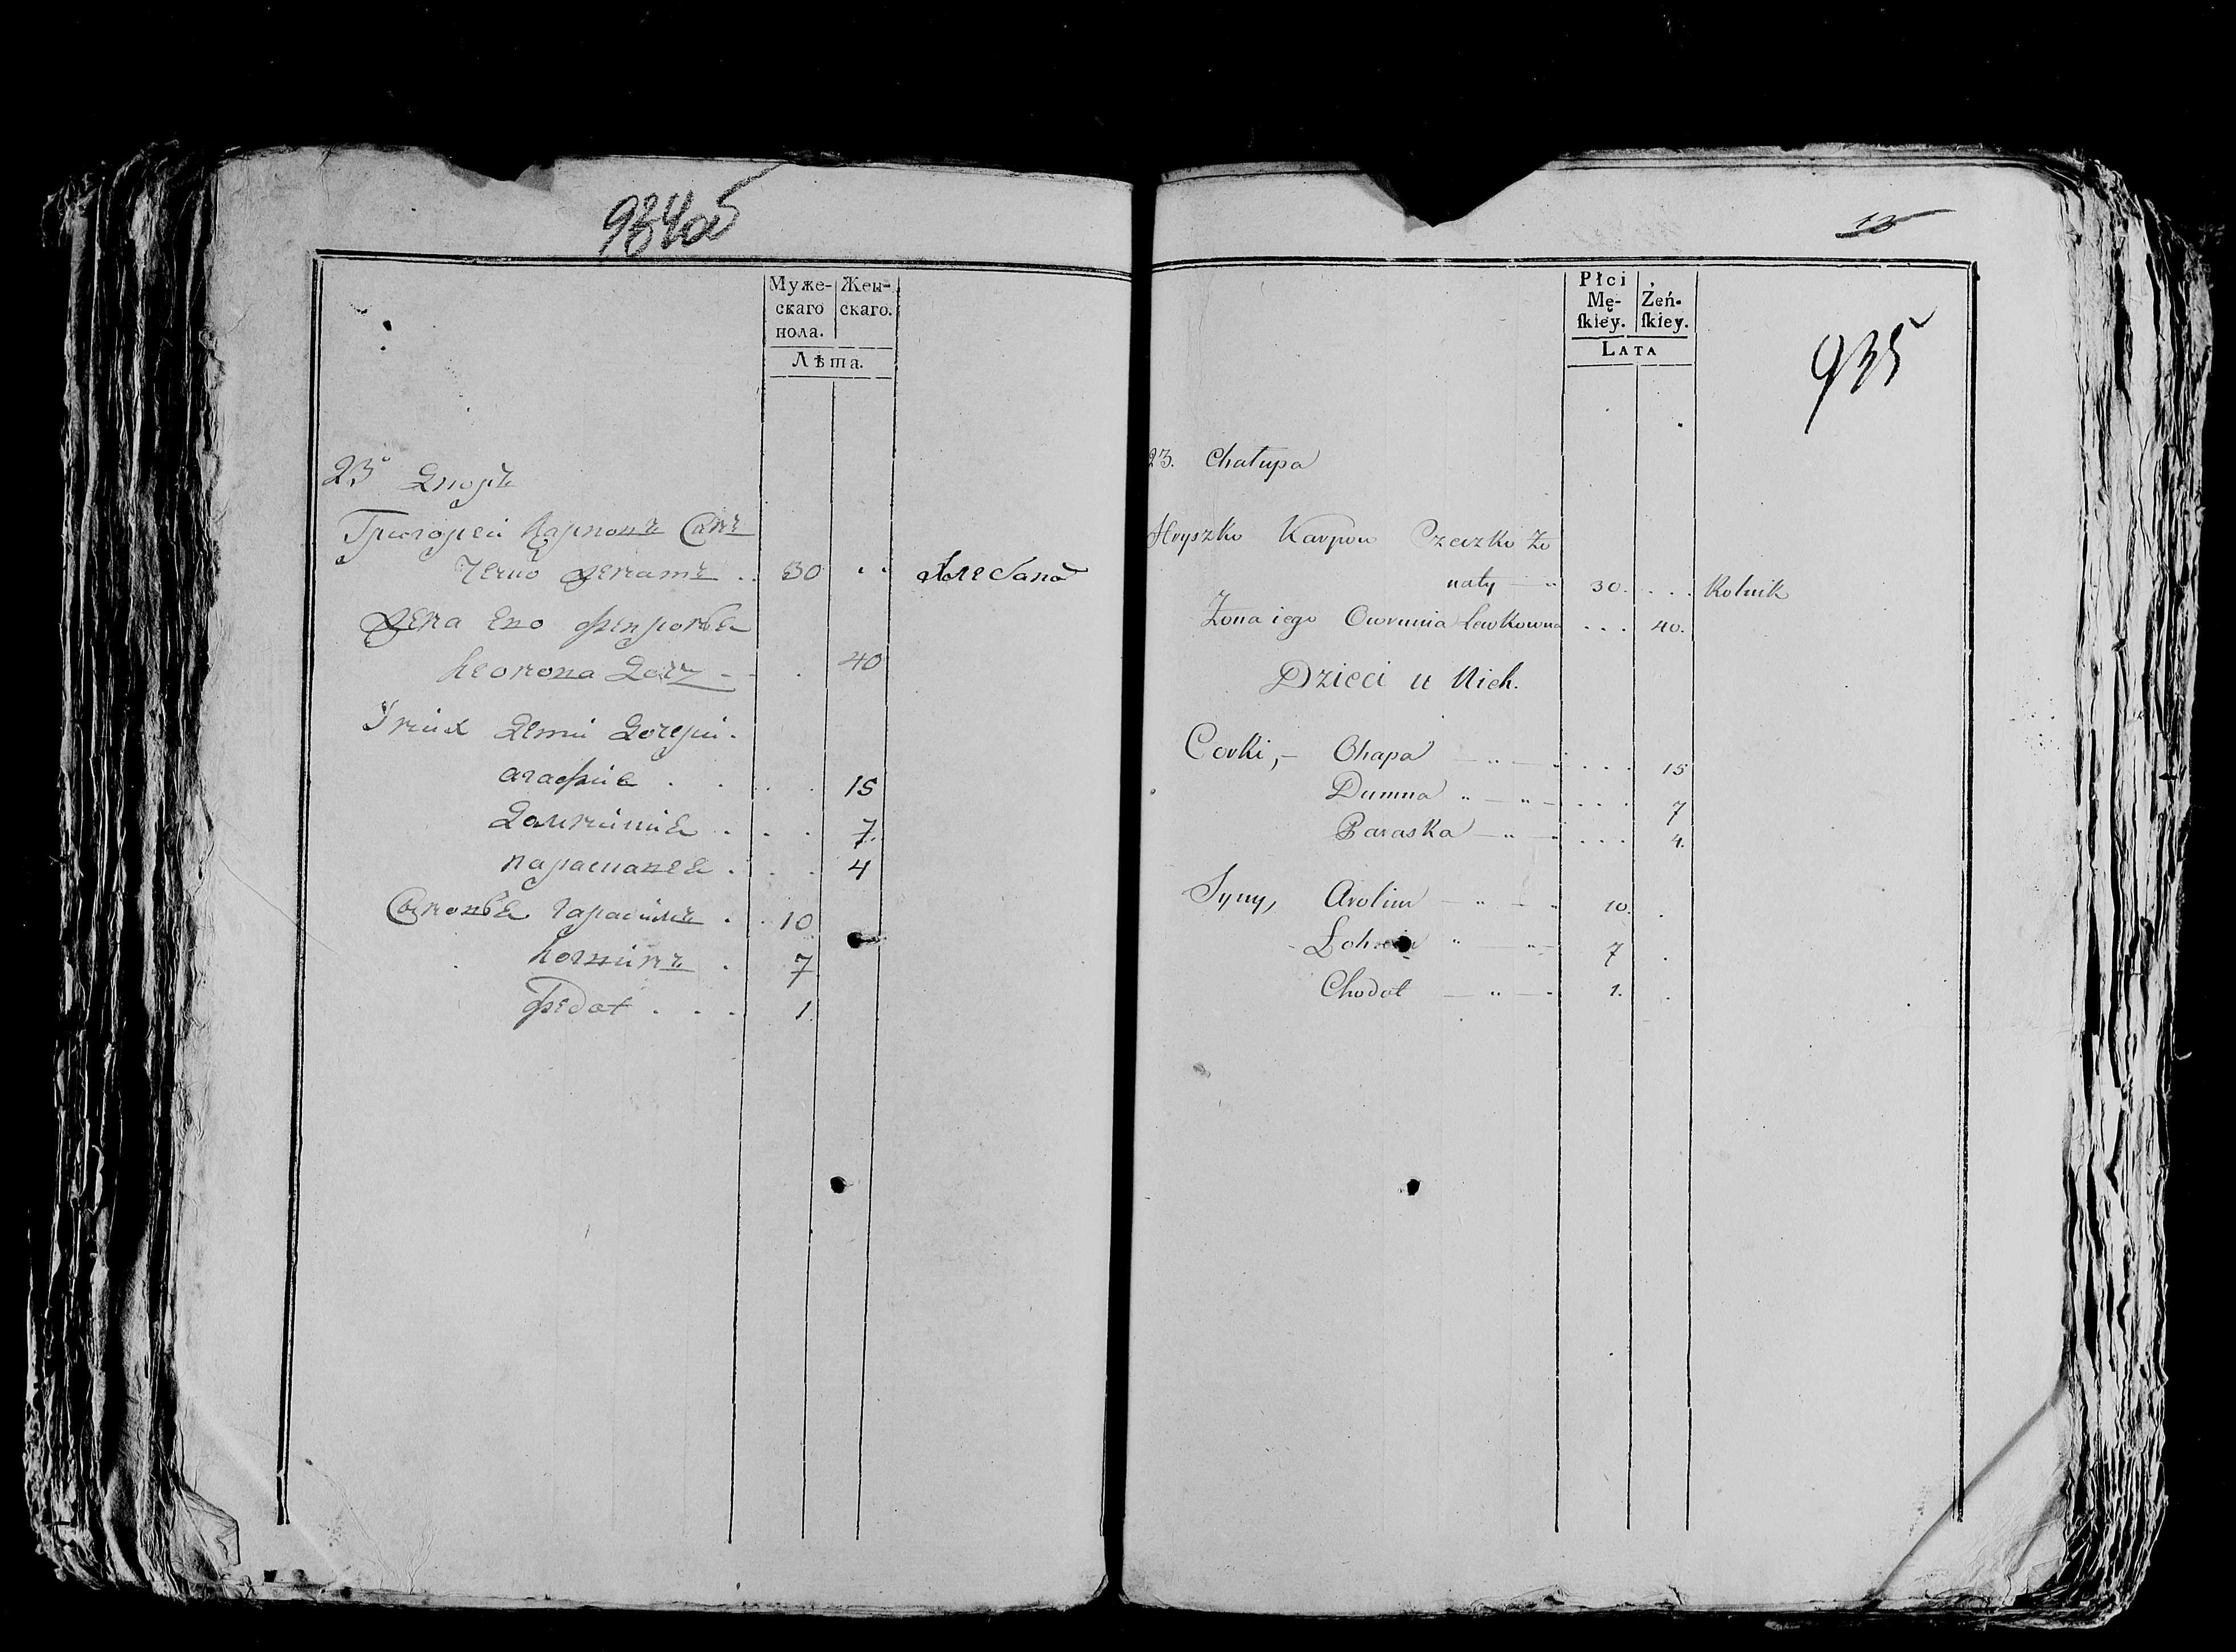 934об
Муже-
скаго
пола.
Жен-
скаго.
Лѣта.
23 Дворъ
Григорей Карповъ Сынъ
женатъ .. 30 ..
Жена Ево
Леонова Дочь - - . 40
У них Дети Дочери.
агафия . . . . 15
Домникия . . . 7.
парасковея . . . 4
Сыновья Гарасимъ . . 10
Логвинъ . 7
Федот . . . 1.
13
Płci
Mę-
ſkiey.
Żeń-
ſkiey.
LATA
935
23. Chałupa
Hryszko Karpow Czeczko Żo
naty — „ 30. . . . Rolnik
Żona iego Lewkowna . . . 40.
Dzieci u Nich.
Corki, - Ohapa — „ — „ . . . 15
Dumna „ — „ — . . . 7
Paraska — „ — „ . . . 4.
Syny, Arolim — „ — „ 10. .
7 .
Chodot — „ — „ 1. .